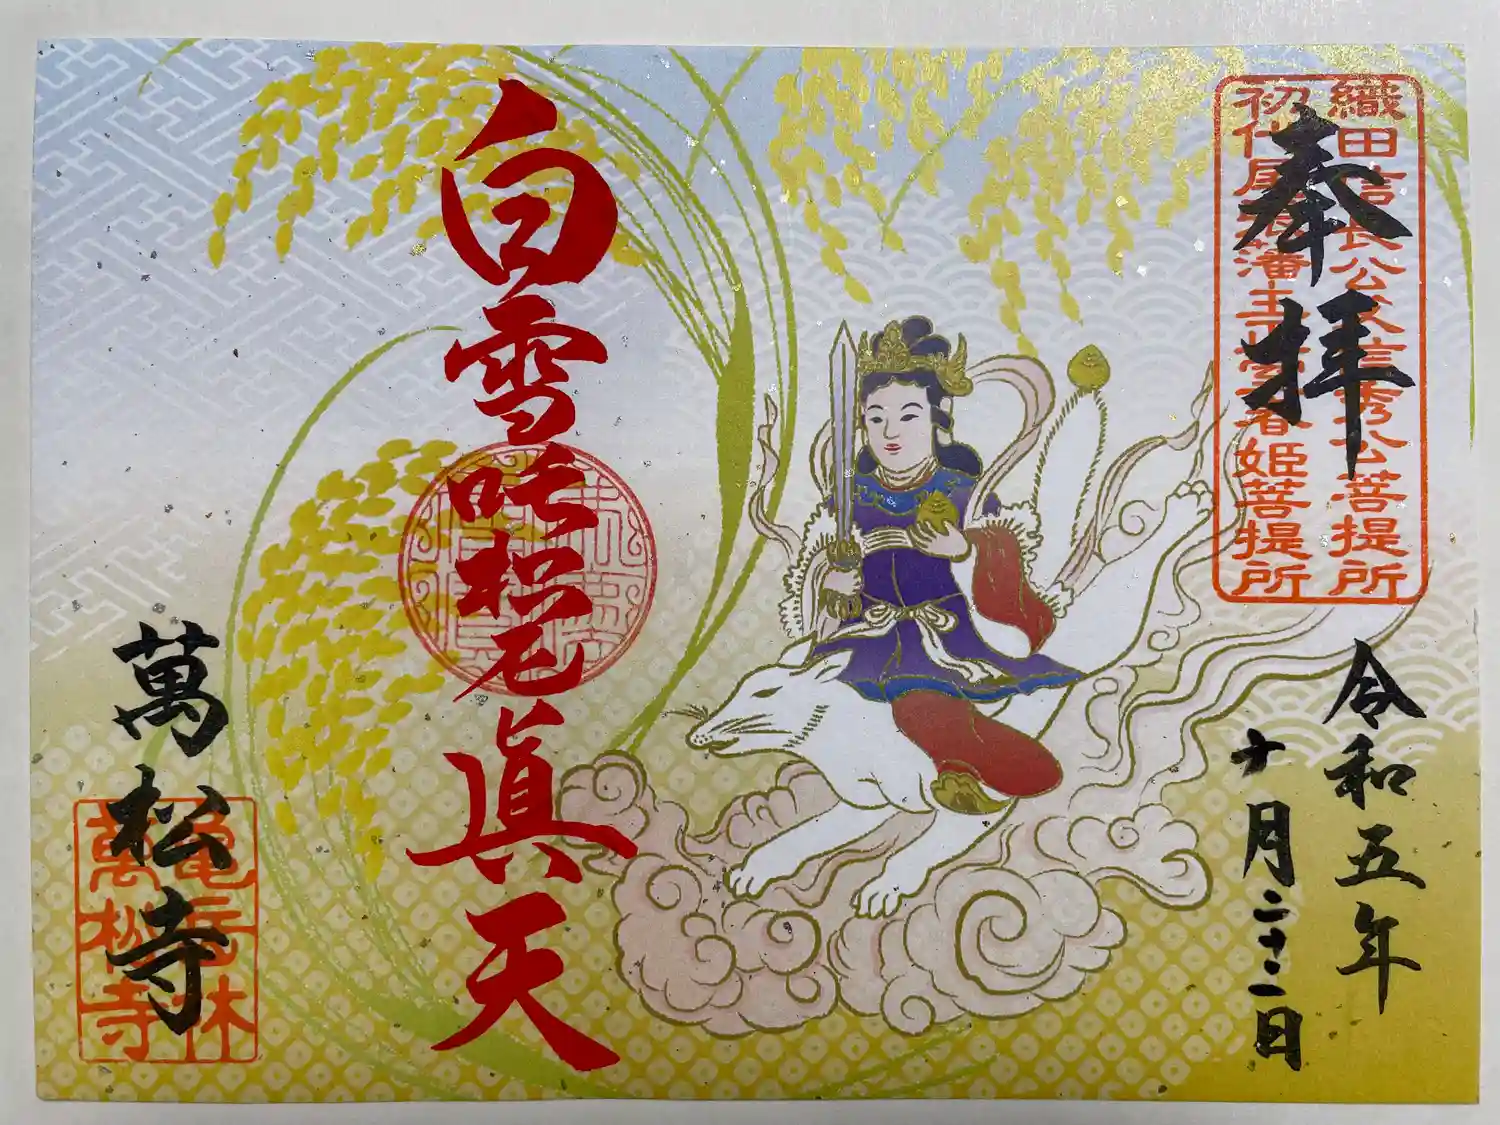 奉拝
織田信長公父信秀公菩提所
初代尾張藩主正室春姫菩提所
令和五年
十月二十二日
白雪吒枳尼眞天
萬松寺
亀岳林
萬松寺